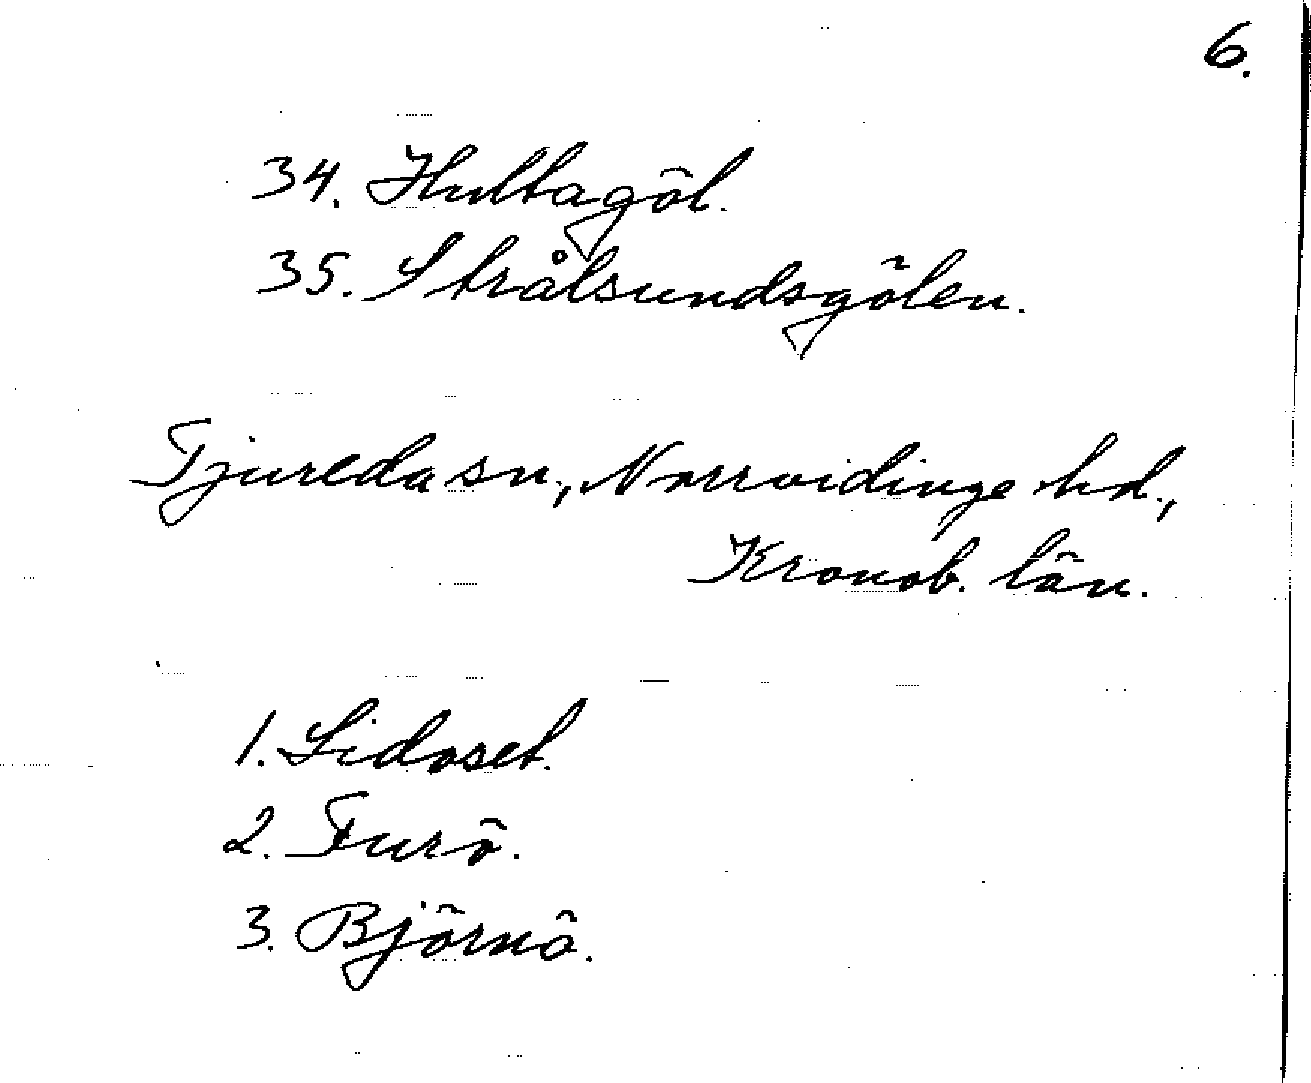 6.
34. Hultagöl.
35. Strålsundsgölen.
Tjureda sn, Norrvidinge hd.,
Kronob. län.
1. Sidoset.
2. Furö.
3. Björnö.